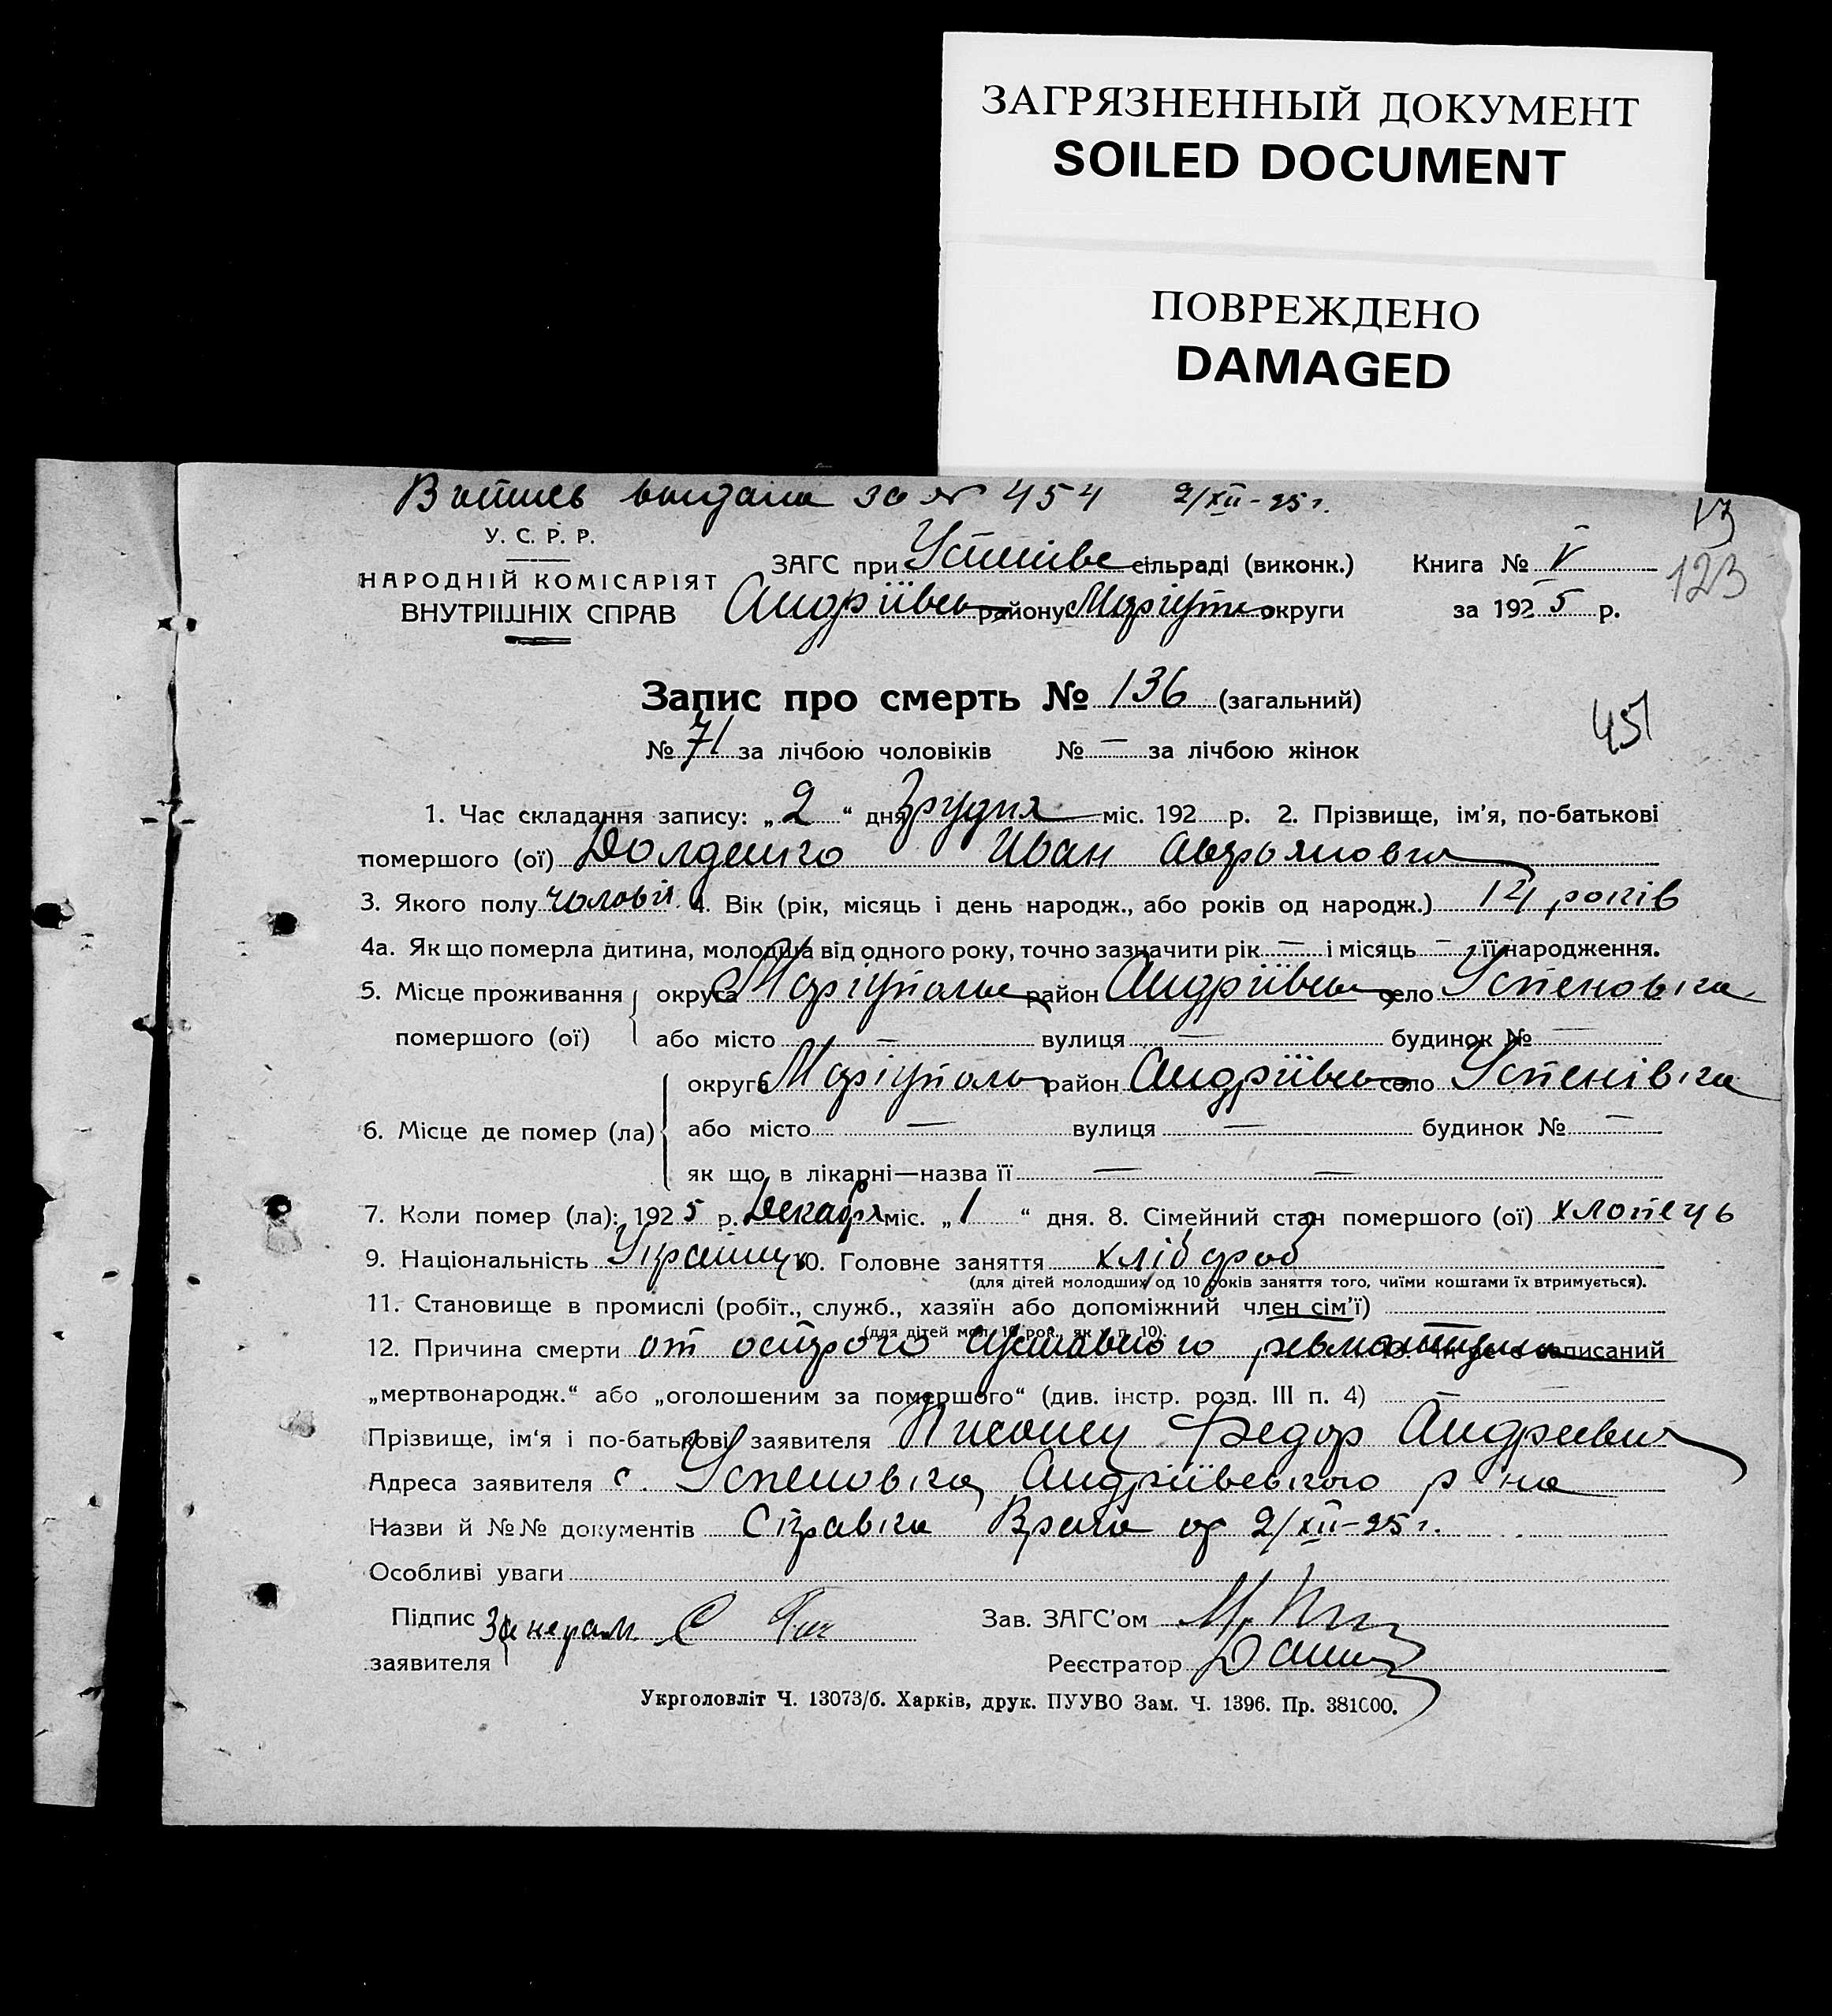 ЗАГРЯЗНЕННЫЙ ДОКУМЕНТ
SOILED DOCUMENT
ПОВРЕЖДЕНО
DAMAGED
видана за № 454 2/XII-25 г.
У. С. Р. Р.
НАРОДНІЙ КОМІСАРІЯТ
ВНУТРІШНІХ СПРАВ
ЗАГС при сільраді (виконк.) Книга № V
Андріївськ району Маріуп округи за 1925 р.
123
Запис про смерть № 136 (загальний)
451
№ 71 за лічбою чоловіків № — за лічбою жінок
1. Час складання запису: „2“ дня Грудня міс. 192 р. 2. Прізвище, ім'я, по-батькові
помершого (ої) Иван
3. Якого полу чоловіч. 4. Вік (рік, місяць і день народж., або років од народж.) 14 років
4а. Як що померла дитина, молодша від одного року, точно зазначити рік — і місяць — її народження.
5. Місце проживання округа Маріупольськ район Андріївськ село Успеновка
помершого (ої) або місто — вулиця — будинок № —
округа Маріупольськ район Андріївськ село Успенівка
6. Місце де помер (ла) або місто — вулиця — будинок № —
як що в лікарні—назва її — —
7. Коли помер (ла): 1925 р. Декабря міс. „1“ дня. 8. Сімейний стан помершого (ої) хлопець
9. Національність Україн 10. Головне заняття хлібороб
(для дітей молодших од 10 років заняття того, чиїми коштами їх втримується).
11. Становище в промислі (робіт., служб., хазяїн або допоміжний член сім'ї)
(для дітей мол. 10 рок., як в п. 10).
12. Причина смерти от острого суставного ревматизма записаний
„мертвонародж.“ або „оголошеним за помершого“ (див. інстр. розд. III п. 4) —
Прізвище, ім'я і по-батькові заявителя Федор Андреевич
Адреса заявителя с. Успеновка, Андріївського р-на
Назви й №№ документів Справка Врача от 2/XII-25 г.
Особливі уваги
Підпис За неграм. Зав. ЗАГС'ом
заявителя Реєстратор
Укрголовліт Ч. 13073/б. Харків, друк. ПУУВО Зам. Ч. 1396. Пр. 381000.